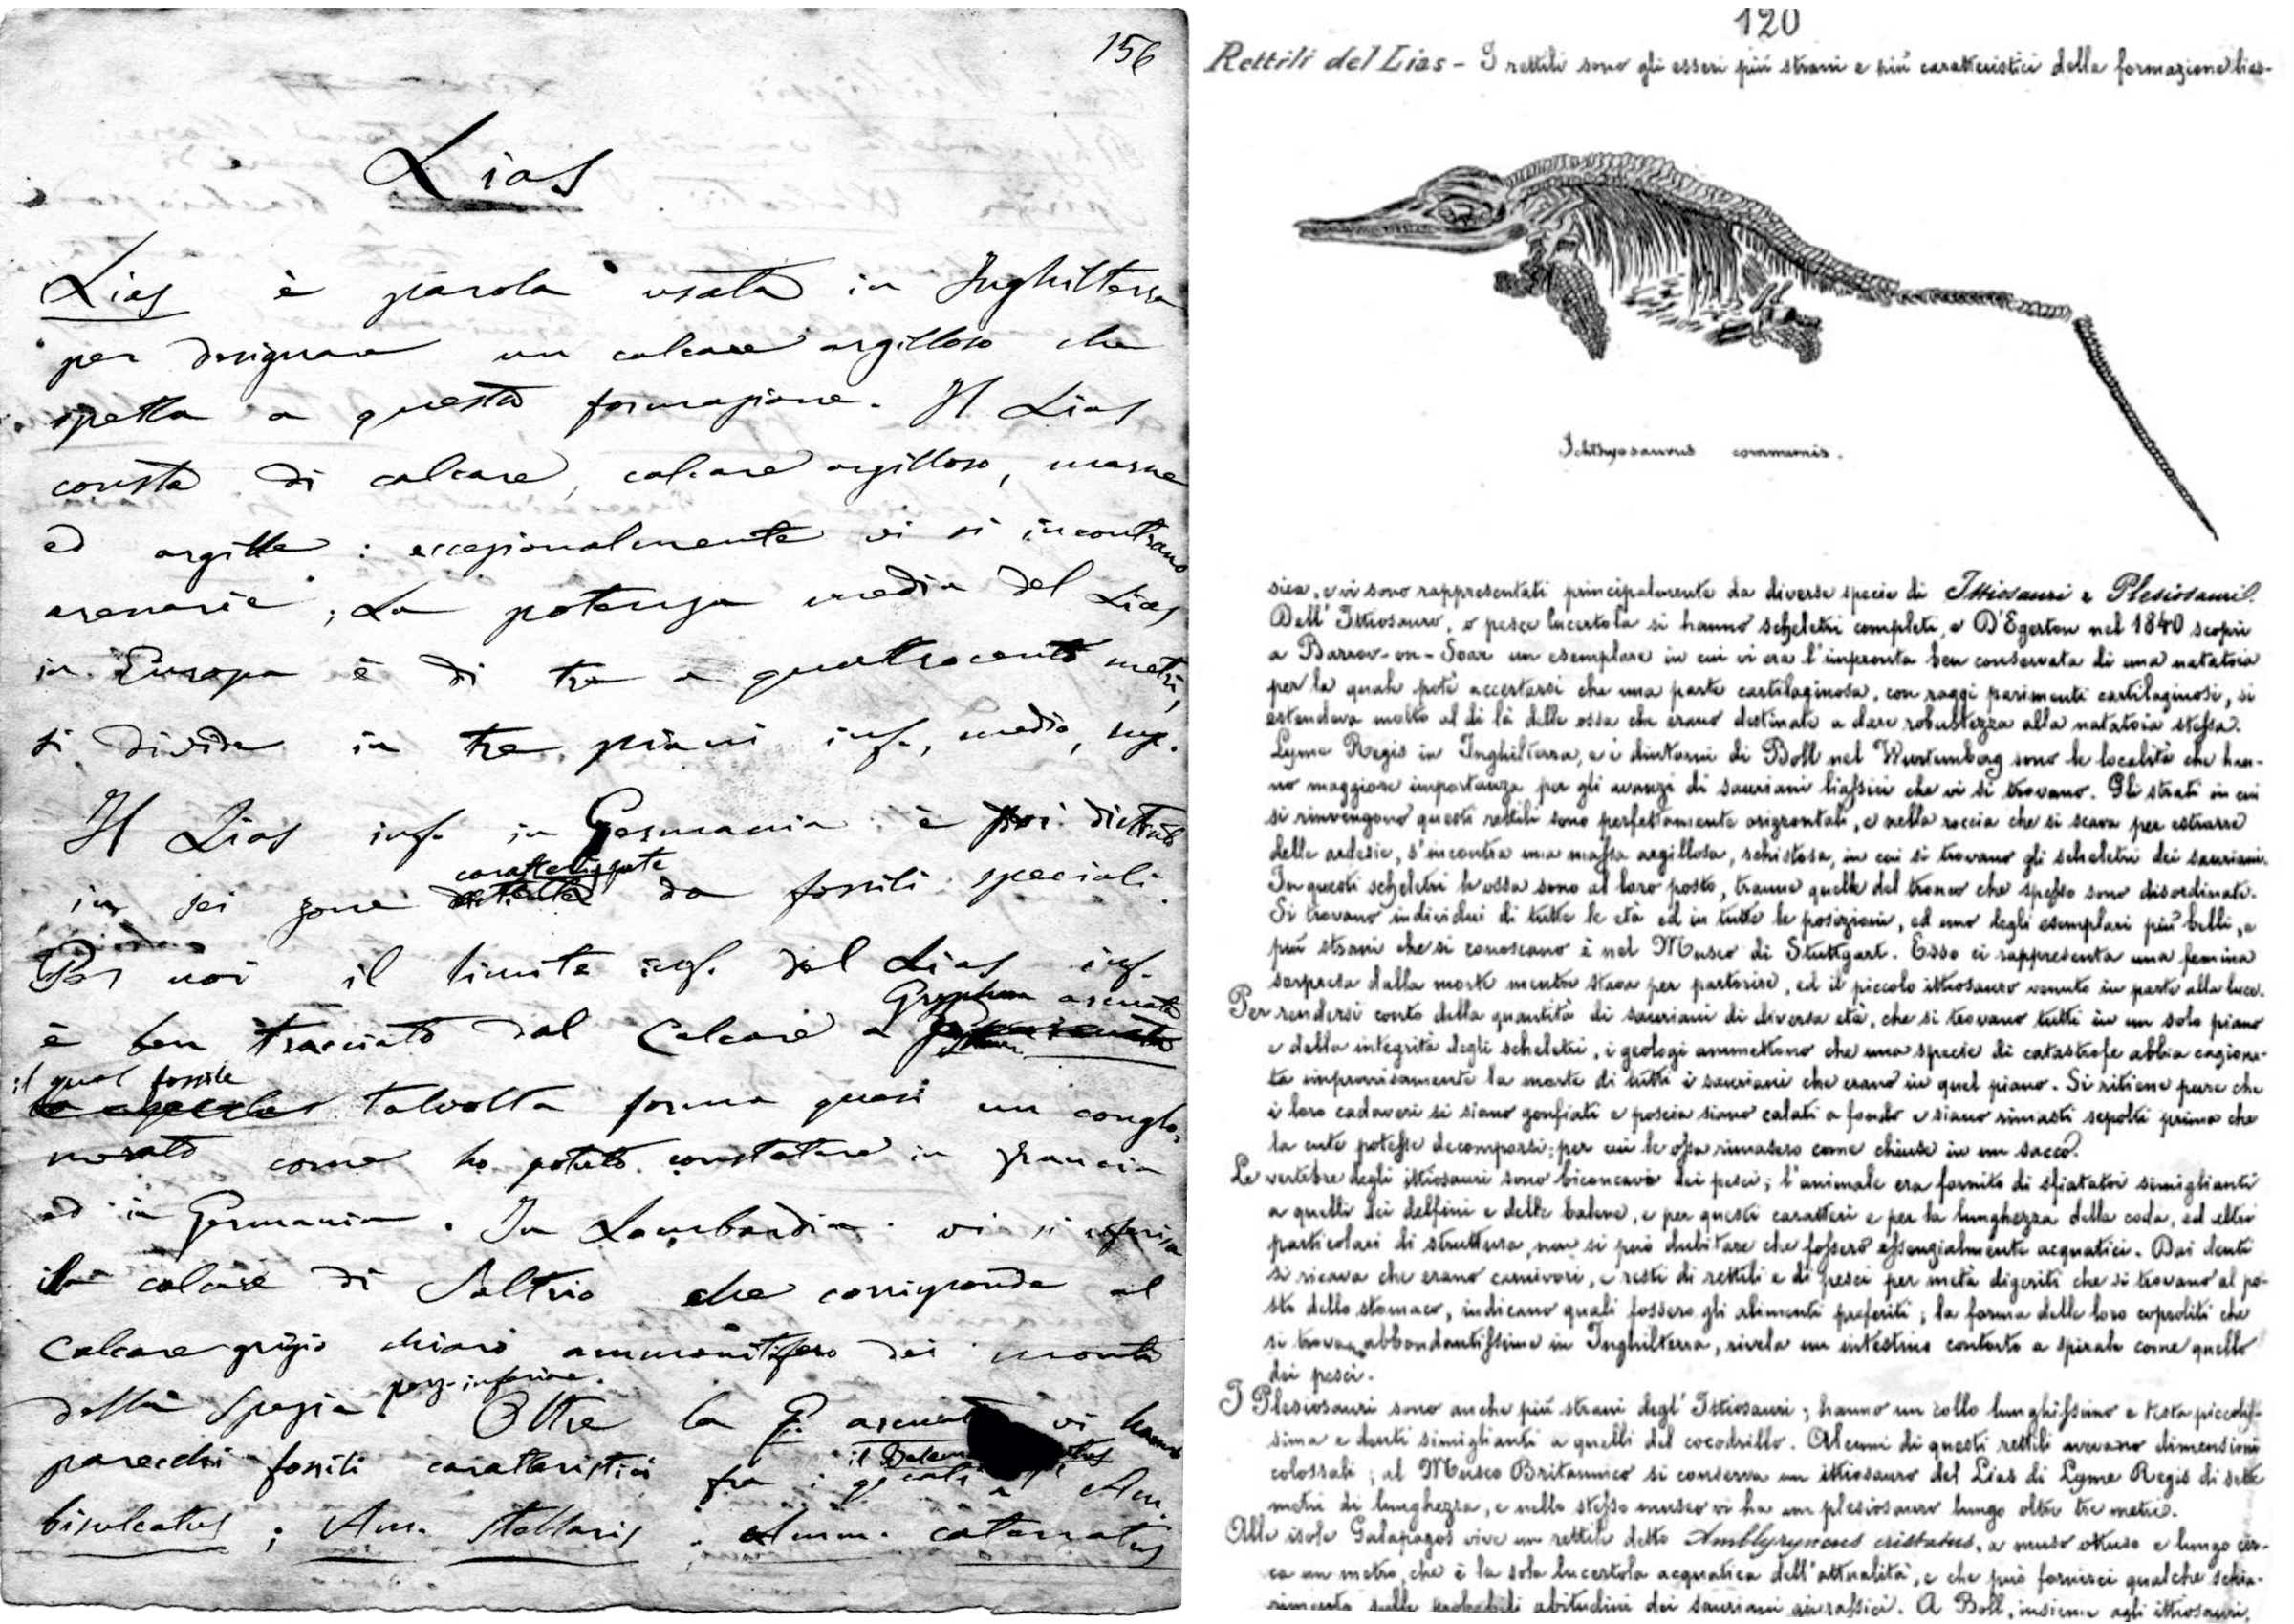 156
Lias
Lias è parola usata in Inghilterra
per designare un calcare argilloso che
spetta a questa formazione. Il Lias
consta di calcare, calcare argilloso, marne
ed argille: eccezionalmente vi si incontrano
arenarie; La potenza media del Lias
in Europa è di tre a quattrocento metri,
si divide in tre piani inf., medio, sup.
Il Lias inf. in Germania è poi distinto
caratterizzate
in sei zone da fossili speciali.
Per noi il limite inf. del Lias inf.
Gryphaea arcuata
è ben tracciato dal Calcare a
il qual fossile
talvolta forma quasi un conglo-
merato come ho potuto constatare in Francia
ed in Germania. In Lombardia vi si riferisce
il calcare di Saltrio che corrisponde al
Calcare grigio chiaro ammonitifero dei monti
parz. inferiore.
della Spezia. Oltre la G. arcuata vi hanno
parecchi fossili caratteristici fra i quali Am.
bisulcatus; Am. stellaris. Amm. catenatus
120
Rettili del Lias - I rettili sono gli esseri più strani e più caratteristici della formazione lias-
Ichthyosaurus communis.
sica, e vi sono rappresentati principalmente da diverse specie di Ittiosauri e Plesiosauri.
Dell'Ittiosauro, o pesce lucertola si hanno scheletri completi, e D'Egerton nel 1840 scoprì
a Barrow-on-Soar un esemplare in cui vi era l'impronta ben conservata di una natatoia
per la quale potè accertarsi che una parte cartilaginosa, con raggi parimenti cartilaginosi, si
estendeva molto al di là delle ossa che erano destinate a dare robustezza alla natatoia stessa.
Lyme Regis in Inghilterra, e i dintorni di Boll nel Wurtemberg sono le località che han-
no maggiore importanza per gli avanzi di sauriani liassici che vi si trovano. Gli strati in cui
si rinvengono questi rettili sono perfettamente orizzontali, e nella roccia che si scava per estrarre
delle ardesie, s'incontra una massa argillosa, schistosa, in cui si trovano gli scheletri dei sauriani.
In questi scheletri le ossa sono al loro posto, tranne quelle del tronco che spesso sono disordinate.
Si trovano individui di tutte le età ed in tutte le posizioni, ed uno degli esemplari più belli, e
più strani che si conoscano è nel Museo di Stuttgart. Esso ci rappresenta una femina
sorpresa dalla morte mentre stava per partorire, ed il piccolo ittiosauro venuto in parte alla luce.
Per rendersi conto della quantità di sauriani di diversa età, che si trovano tutti in un solo piano
e della integrità degli scheletri, i geologi ammettono che una specie di catastrofe abbia cagiona-
ta improvvisamente la morte di tutti i sauriani che erano in quel piano. Si ritiene pure che
i loro cadaveri si siano gonfiati e poscia siano calati a fondo e siano rimasti sepolti prima che
la cute potesse decomporsi; per cui le ossa rimasero come chiuse in un sacco.
Le vertebre degli ittiosauri sono biconcave dei pesci; l'animale era fornito di sfiatatoi simiglianti
a quelli dei delfini e delle balene, e per questi caratteri e per la lunghezza della coda, ed altri
particolari di struttura, non si può dubitare che fossero essenzialmente acquatici. Dai denti
si ricava che erano carnivori, e resti di rettili e di pesci per metà digeriti che si trovano al po-
sto dello stomaco, indicano quali fossero gli alimenti preferiti; la forma delle loro coproliti che
si trovano abbondantissime in Inghilterra, rivela un intestino contorto a spirale come quello
dei pesci.
I Plesiosauri sono anche più strani degl'Ittiosauri; hanno un collo lunghissimo e testa piccolis-
sima e denti simiglianti a quelli del cocodrillo. Alcuni di questi rettili avevano dimensioni
colossali; al Museo Britannico si conserva un ittiosauro del Lias di Lyme Regis di sette
metri di lunghezza, e nello stesso museo vi ha un plesiosauro lungo oltre tre metri.
Alle isole Galapagos vive un rettile detto Amblyryncus cristatus, a muso ottuso e lungo cir-
ca un metro, che è la sola lucertola acquatica dell'attualità, e che può fornirci qualche schia-
rimento sulle probabili abitudini dei sauriani giurassici. A Boll, insieme agli ittiosauri,